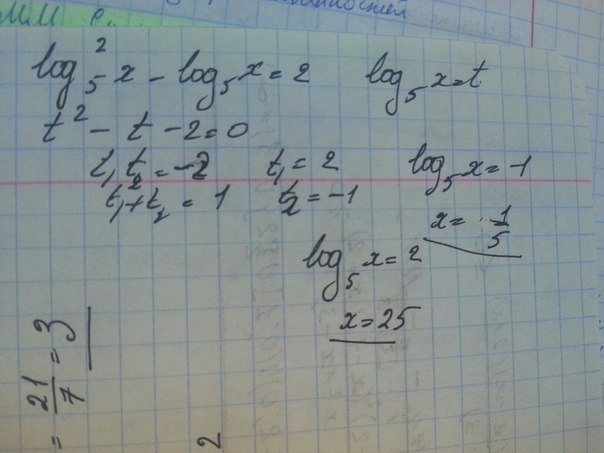 log₅²x - log₅x = 2    log₅x = t
t² - t - 2 = 0
t₁t₂ = -2    t₁ = 2    log₅x = -1
t₁ + t₂ = 1    t₂ = -1    x = 1/5
log₅x = 2
x = 25
= 21/7 = 3
2